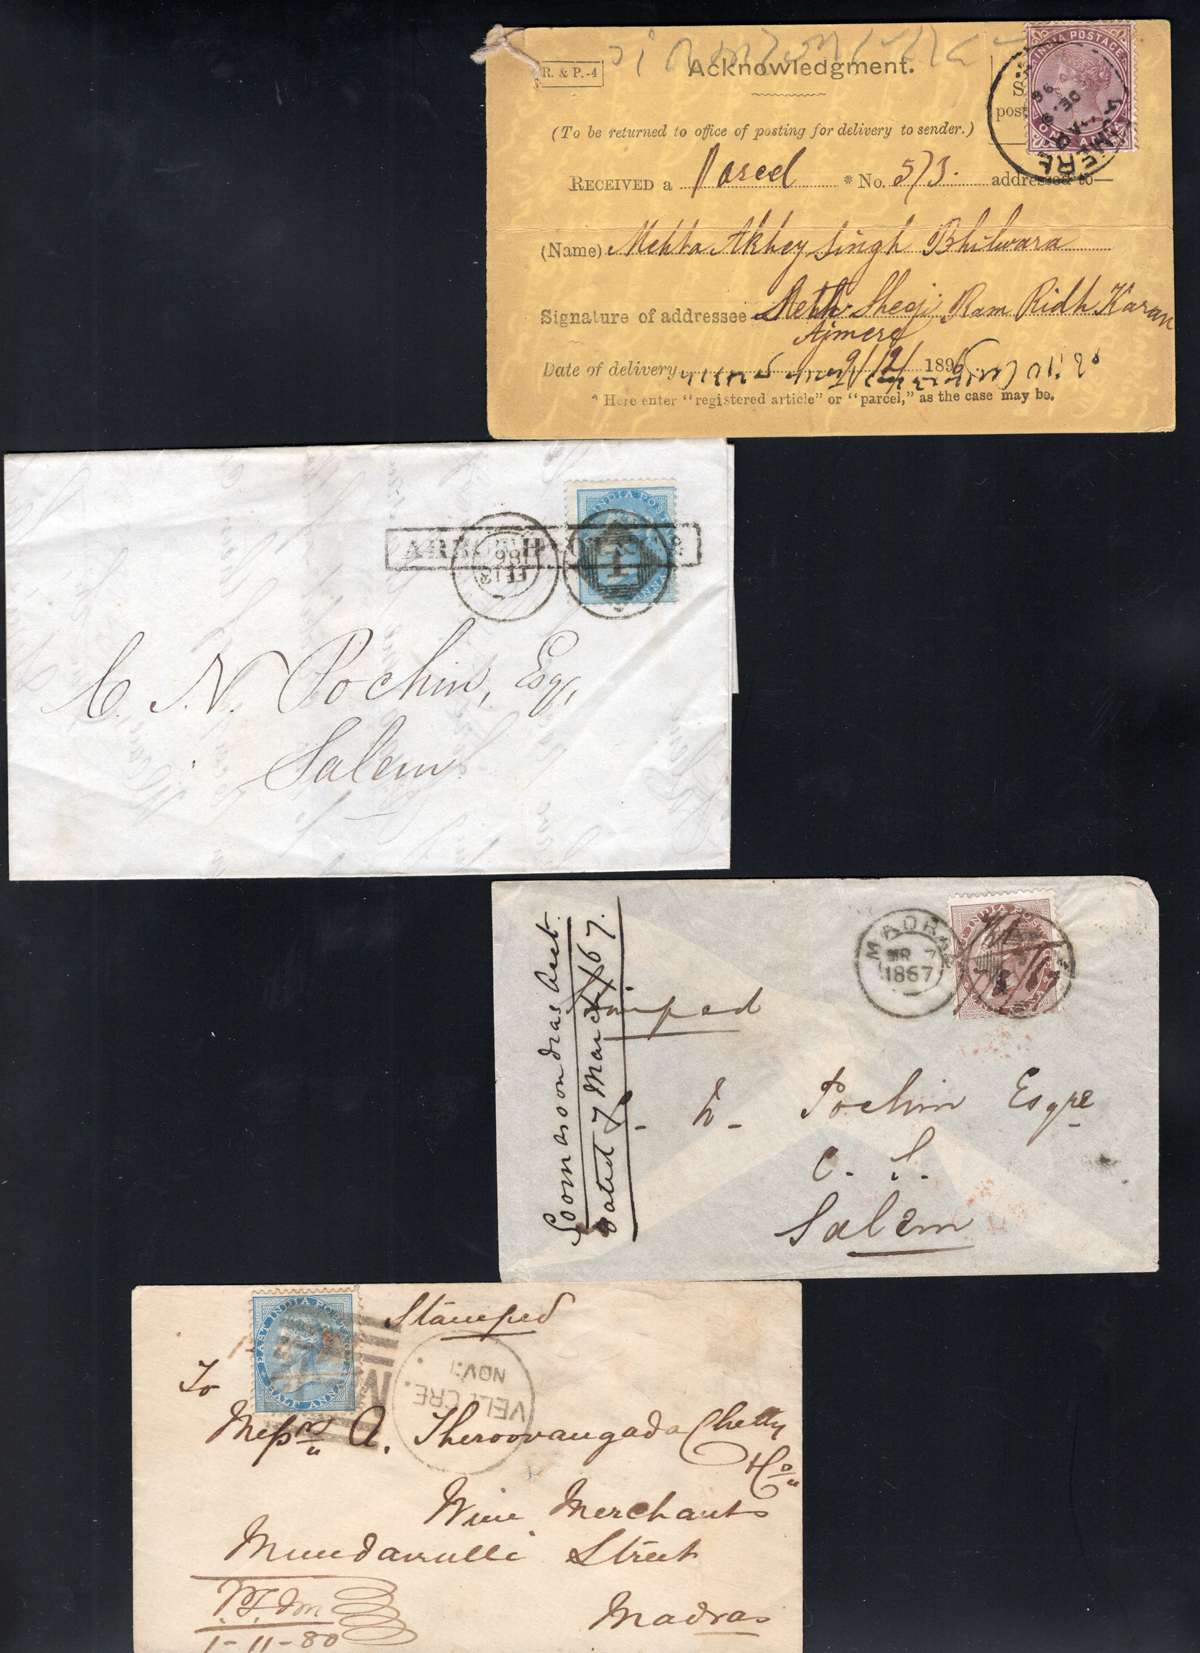 R. & P.-4
Acknowledgment.
(To be returned to office of posting for delivery to sender.)
RECEIVED a Parcel * No. 573. addressed to—
(Name) Mehta Akhey Singh Bhilwara
Signature of addressee Seth Sheoji Ram Ridh Karan
Ajmere
Date of delivery 9/12/ 1896
* Here enter "registered article" or "parcel," as the case may be.
INDIA POSTAGE
AJMERE
DE. 9
96
INDIA POST
FE 12
C. N. Pochin, Esq,
Salem
MADRAS
MR 7
1867
INDIA POST
Stamped
Dated 7 March /67.
Pochin Esqre
C. S.
Salem
EAST INDIA POSTAGE
HALF ANNA
Stamped
VELLORE.
NOV. 1
To
Messrs A. Theroovangada Chetty
& Co
Wine Merchants
Street
Madras
1-11-80